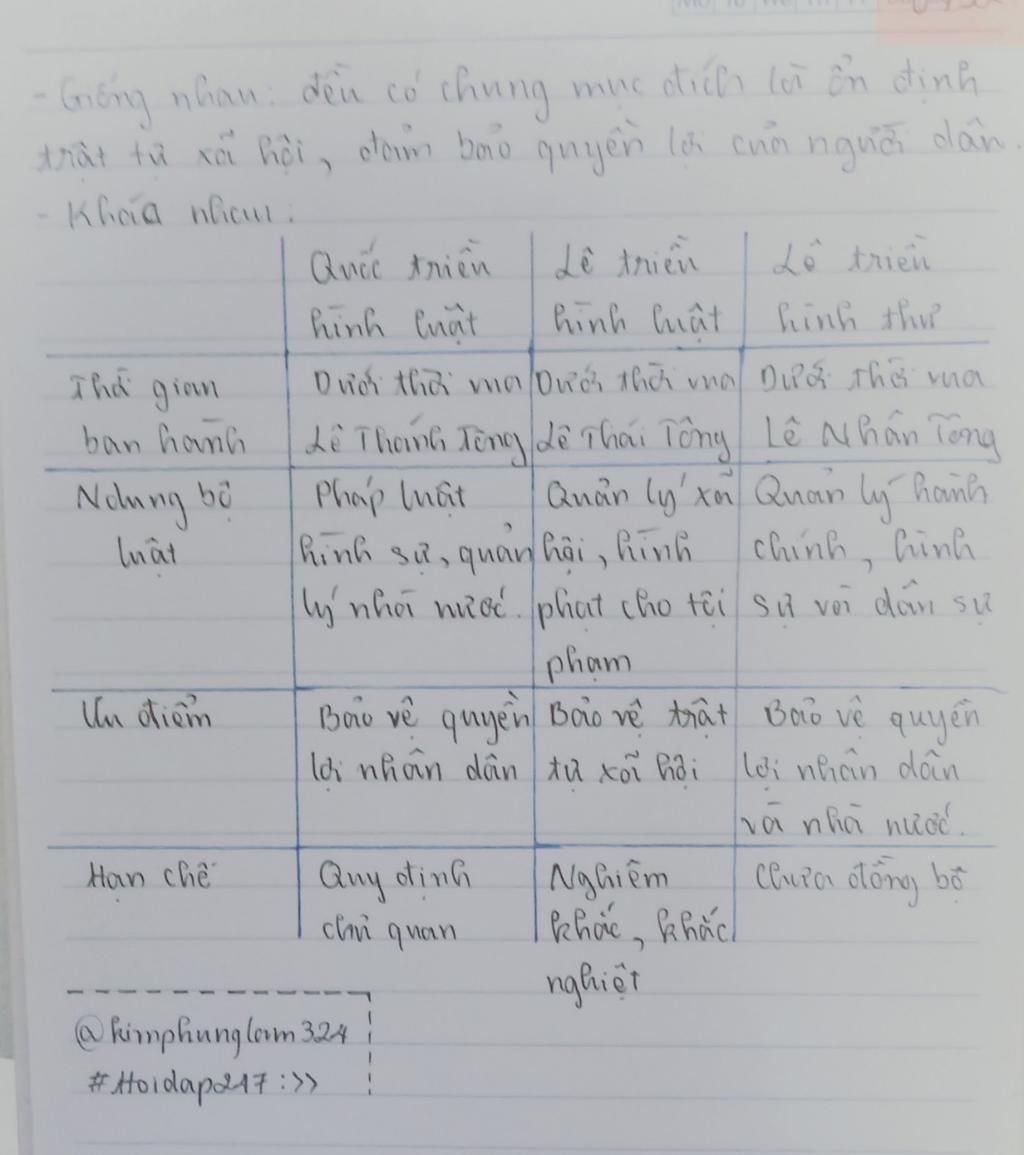 - Giống nhau: đều có chung mục đích là ổn định
trật tự xã hội, đảm bảo quyền lợi của người dân.
- Khác nhau:
Quốc triều Lê triều Lê triều
hình luật hình luật hình thư
Thời gian Dưới thời vua Dưới thời vua Dưới thời vua
ban hành Lê Thánh Tông Lê Thái Tông Lê Nhân Tông
Ndung bộ Pháp luật Quản lý xã Quản lý hành
luật hình sự, quản hội, hình chính, hình
lý nhà nước. phạt cho tội sự và dân sự
phạm
Ưu điểm Bảo vệ quyền Bảo vệ trật Bảo vệ quyền
lợi nhân dân tự xã hội lợi nhân dân
và nhà nước.
Hạn chế Quy định Nghiêm Chưa đồng bộ
chủ quan khắc, khắc
nghiệt
@kimphunglam324
#Hoidap247 :>>